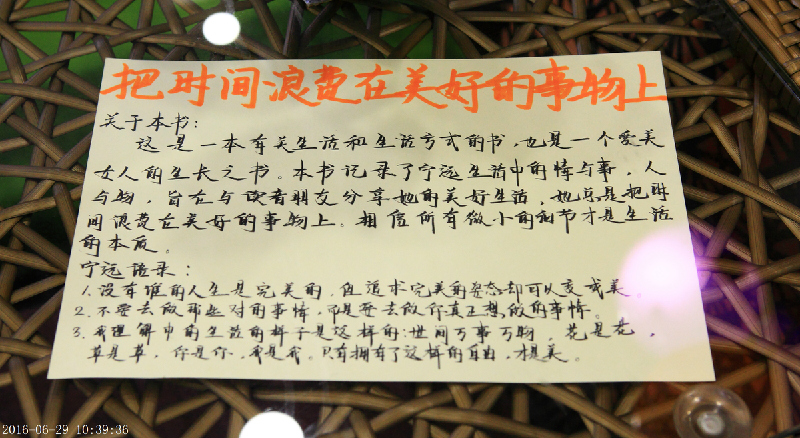 把时间浪费在美好的事物上
关于本书：
这是一本有关生活和生活方式的书，也是一个爱美
女人的生长之书。本书记录了宁远生活中的情与事，人
与物，旨在与读者朋友分享她的美好生活，她总是把时
间浪费在美好的事物上。相信所有微小的细节才是生活
的本质。
宁远语录：
1.没有谁的人生是完美的，但追求完美的姿态却可以变成美。
2.不要去做那些对的事情，而是要去做你真正想做的事情。
3.我理解中的生活的样子是这样的：世间万事万物，花是花，
草是草，你是你，我是我。只有拥有了这样的自由，才是美。
2016-06-29 10:39:36